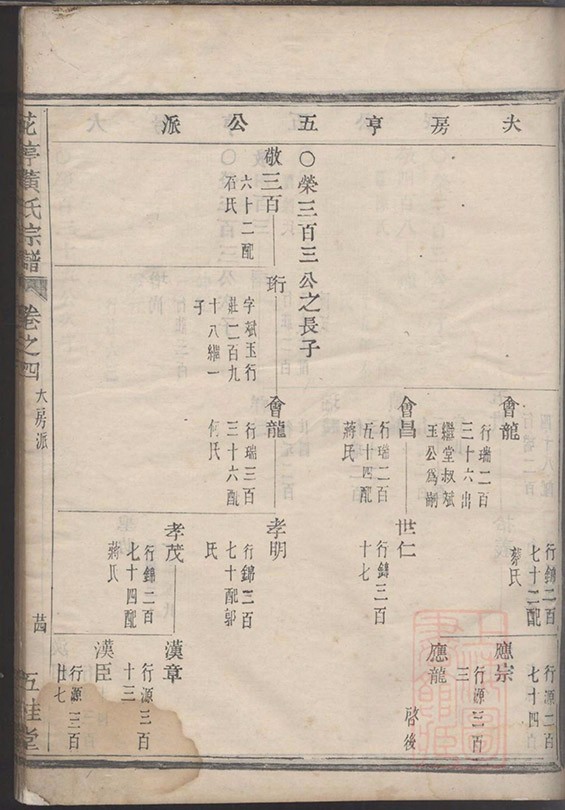 大房亨五公派
行錦二百
七十二配
蔡氏
行源二百
七十四
會龍
行瑞二百
三十六出
繼堂叔斌
玉公為嗣
應宗
行源三百
三
應龍
啓後
會昌
行瑞二百
五十四配
蔣氏
世仁
行錦三百
十七
○榮三百三公之長子
敬三百
六十二配
石氏
珩
字斌玉行
莊二百九
十八繼一
子
會龍
行瑞三百
三十六配
何氏
孝明
行錦三百
七十配郭
氏
孝茂
行錦二百
七十四配
蔣氏
漢章
行源三百
十三
漢臣
行源三百
廿七
花亭黃氏宗譜
卷之四
大房派
廿四
五桂堂